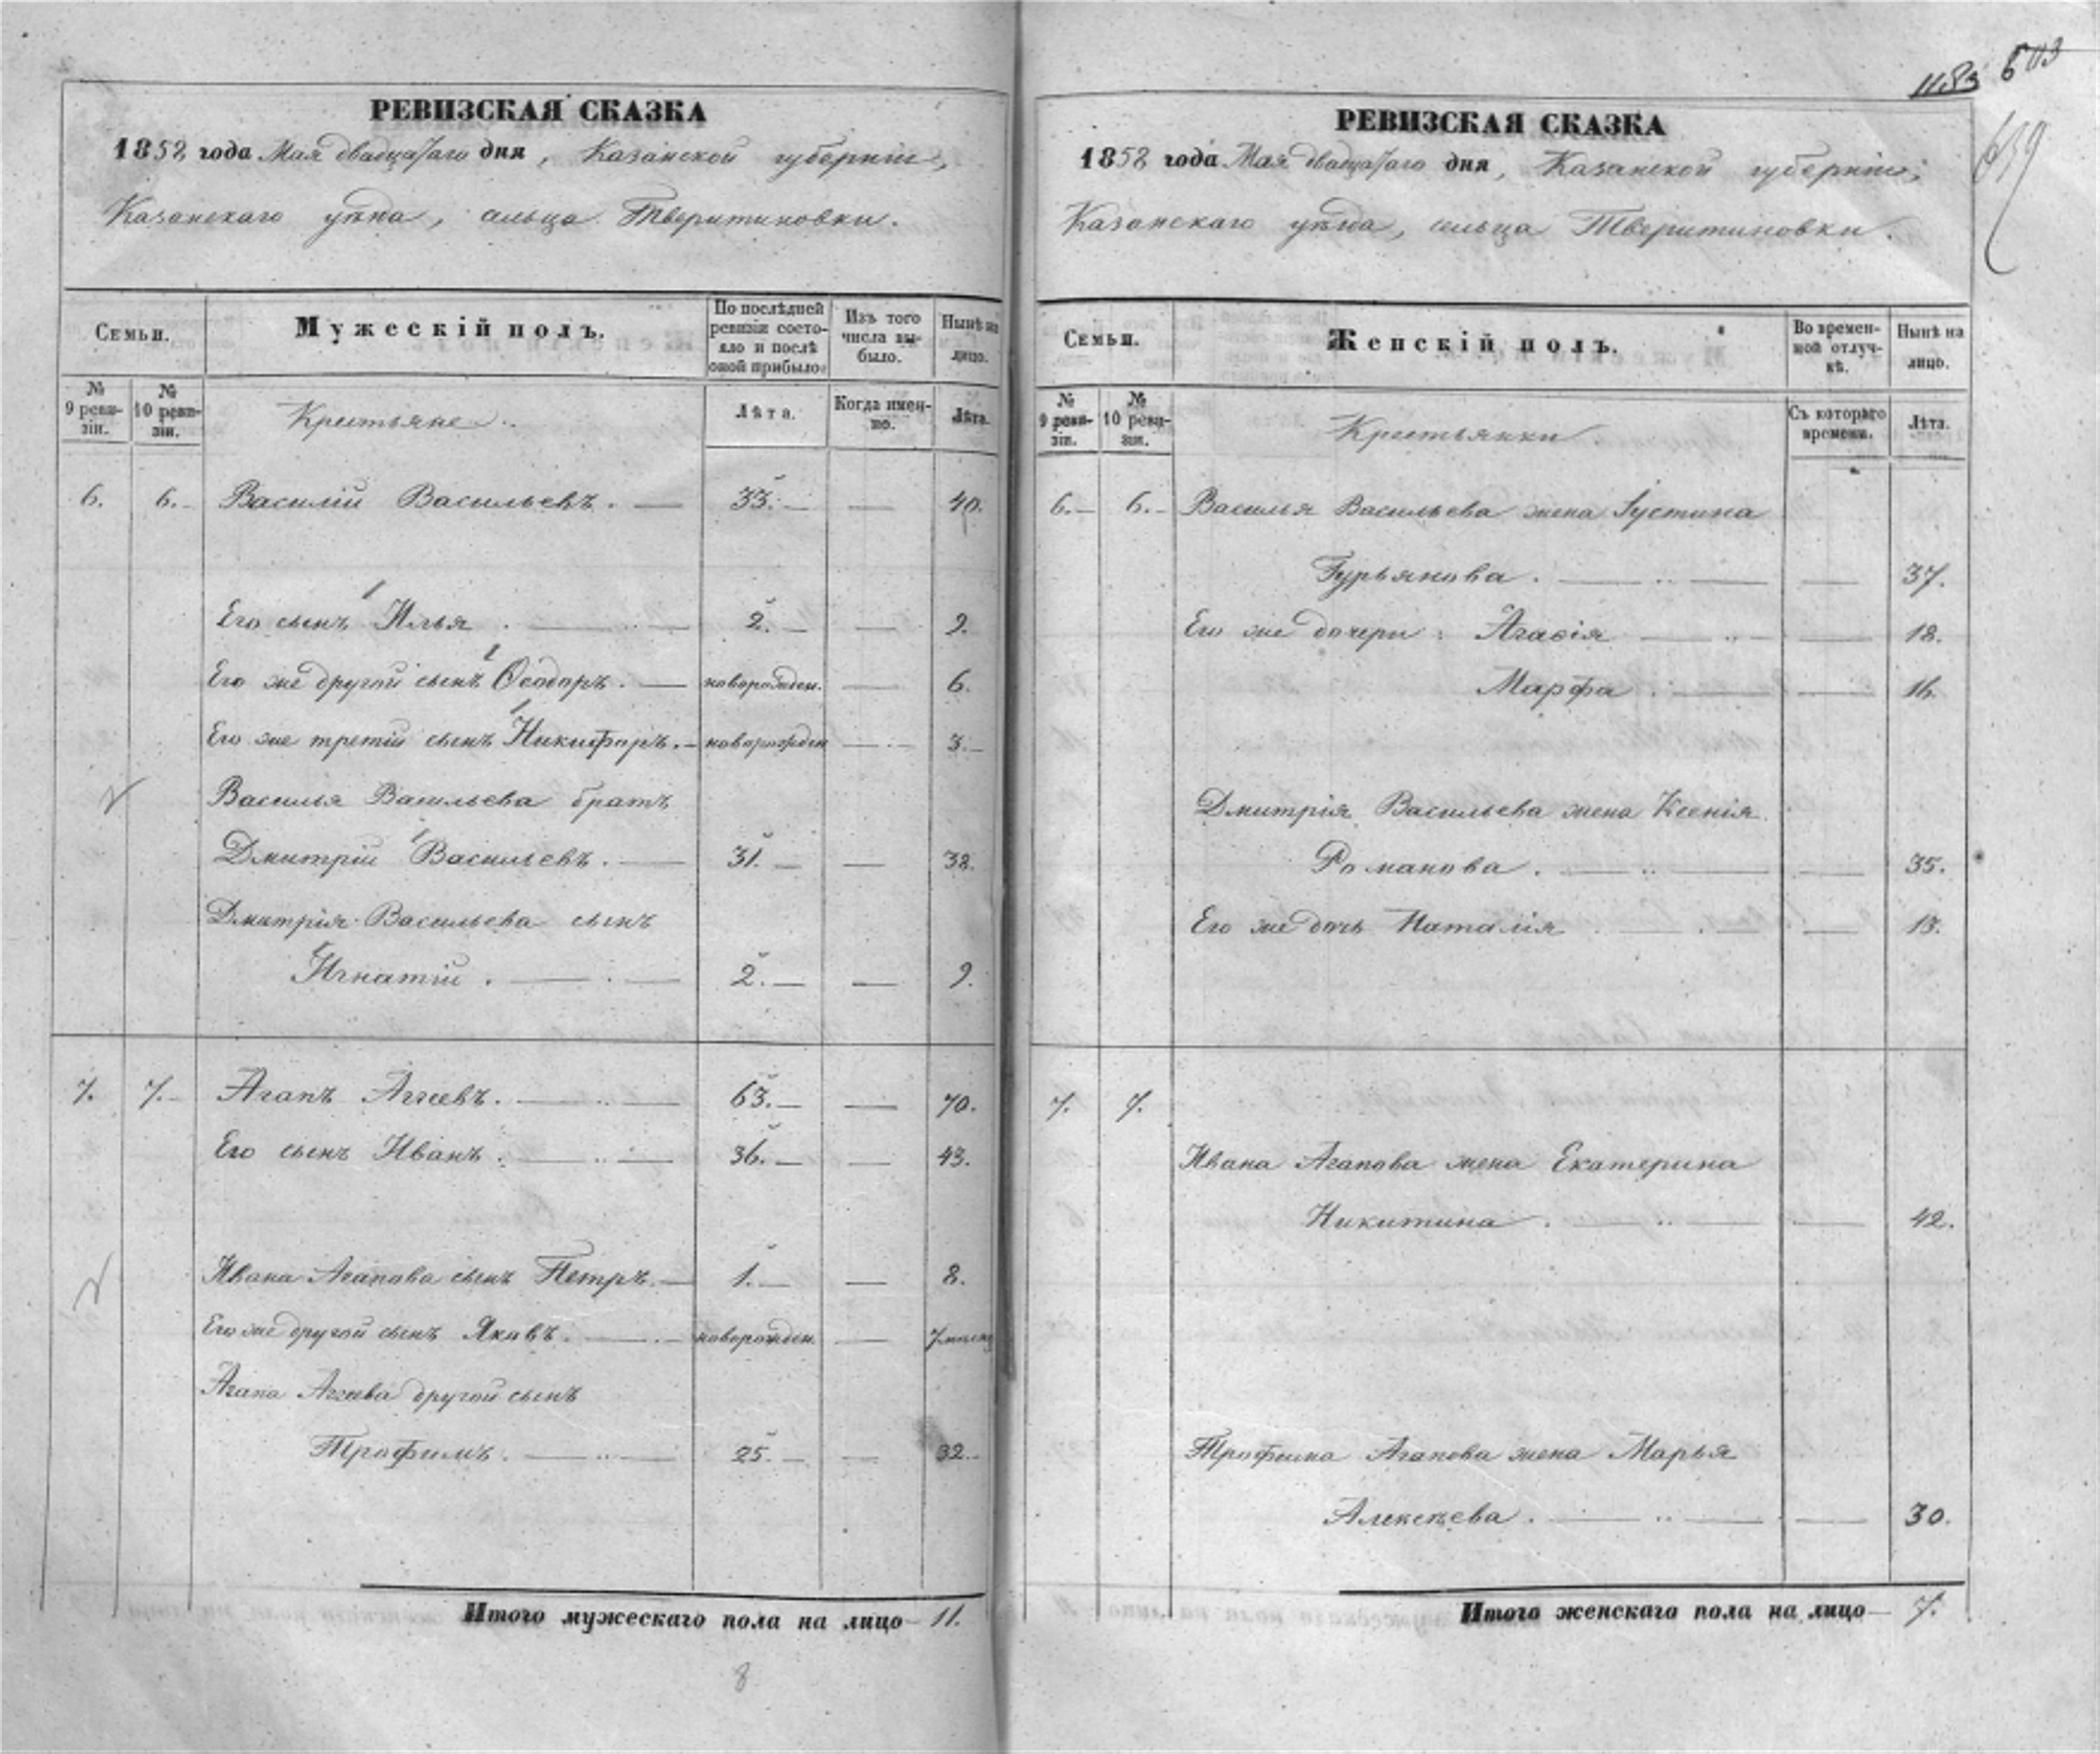 РЕВИЗСКАЯ СКАЗКА
1858 года Мая двадцатаго дня, Казанской губерніи,
Казанскаго уѣзда, сельца Тверитиновки.
Семьи.
Мужескій полъ.
По послѣдней ревизіи состояло и послѣ оной прибыло.
Изъ того числа выбыло.
Нынѣ на лицо.
№ 9 ревизіи.
№ 10 ревизіи.
Крестьяне.
Лѣта.
Когда именно.
Лѣта.
6. 6. Василій Васильевъ. — 33. — — 40.
Его сынъ Илья . — 2. — — 9.
Его же другой сынъ Ѳеодоръ. — новорожден. — 6.
Его же третій сынъ Никифоръ. — новорожден — 3. —
Василья Васильева братъ
Дмитрій Васильевъ. — 31. — — 38.
Дмитрія Васильева сынъ
Игнатій . — 2. — — 9.
7. 7. Агапъ Аггеевъ. — 63. — — 70.
Его сынъ Иванъ. — 36. — — 43.
Ивана Агапова сынъ Петръ. — 1. — — 8.
Его же другой сынъ Яковъ. — новорожден. — 7 мѣсяц
Агапа Аггеева другой сынъ
Трофимъ. — 25. — — 32. —
Итого мужескаго пола на лицо — 11.
8
1183 603
659
РЕВИЗСКАЯ СКАЗКА
1858 года Мая двадцатаго дня, Казанской губерніи,
Казанскаго уѣзда, сельца Тверитиновки.
Семьи.
Женскій полъ.
Во временной отлучкѣ.
Нынѣ на лицо.
№ 9 ревизіи.
№ 10 ревизіи.
Крестьянки.
Съ котораго времени.
Лѣта.
6. — 6. — Василья Васильева жена Іустина
Гурьянова. — — 37.
Его же дочери: Агафія — — 18.
Марфа . — — 16.
Дмитрія Васильева жена Ксенія
Романова . — — 35.
Его же дочь Наталія . — — 13.
7. 7.
Ивана Агапова жена Екатерина
Никитина . — — 42.
Трофима Агапова жена Марья
Алексѣева . — — 30.
Итого женскаго пола на лицо — 7.